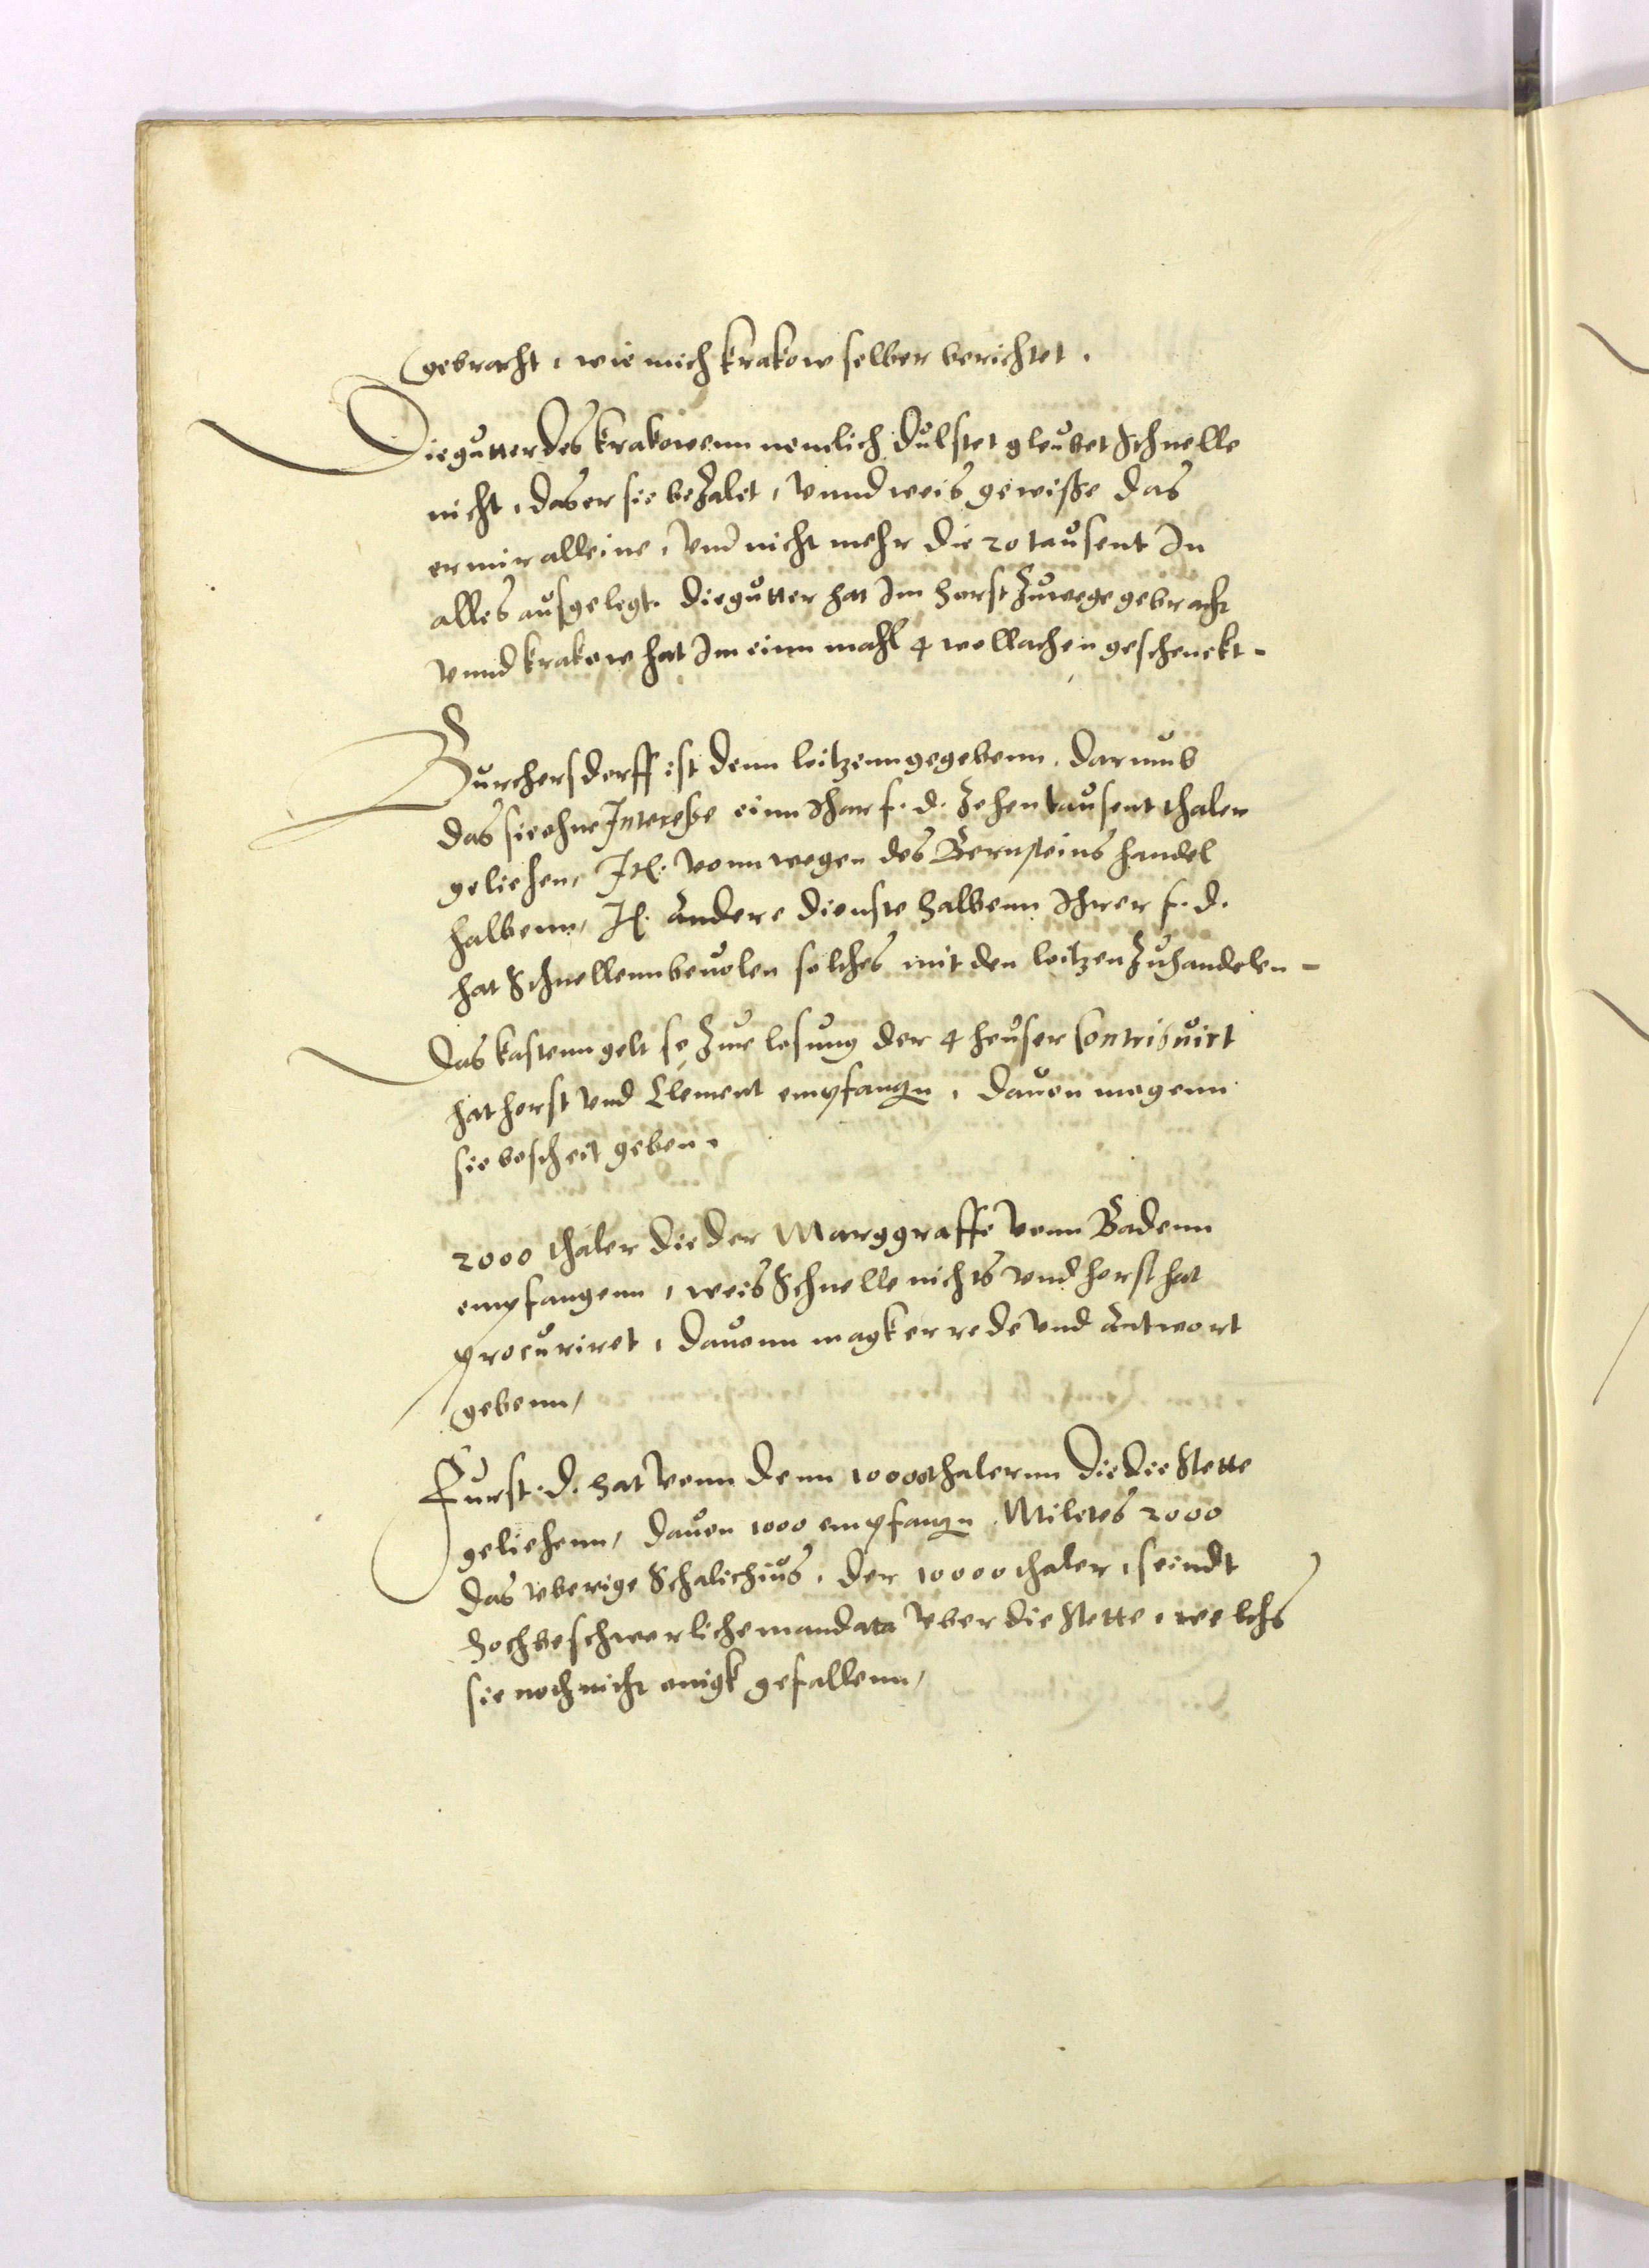 gebracht, wie mich krakow selber berichtet.
Die gutter des krakowenn nemlich Dulstet gleubet Schnelle
nicht, das er sie bezalet, vnnd weis gewisse das
er mir alleine, vnd nicht mehr die 20 tausent In
alles ausgelegt. die gutter hat Im horst zuwege gebracht
vnnd krakow hat Im einn mahl 4 wallachen geschenckt -
Burchersdorff ist denn loitzenn gegebenn, darumb
das sie ohne Interesse einn Ihar f. d. zehen tausent thaler
geliehen, It. vonn wegen des Bernsteins handel
halbenn, It. andere dienste halbenn Ihrer f. d.
hat Schnellenn beuolen solches mit den loitzen zuhandelen -
Das kastenn gelt so zur losung der 4 heuser Contribuirt
hat horst vnd Clement empfangen, dauon mogenn
sie bescheit geben.
2000 thaler die der Marggraffe vonn Badenn
empfangenn, weis Schnelle nichts vnd horst hat
procuriret, dauonn magk er rede vnd antwort
gebenn,
Furst. d. hat vonn denn 10000 thalernn die die Stette
geliehenn, dauon 1000 empfangen Miletes 2000
das vberige Schalichius, der 10000 thaler, seindt
hochbeschwerliche mandata vber die Stette, welchs
sie noch nicht einigk gefallenn,